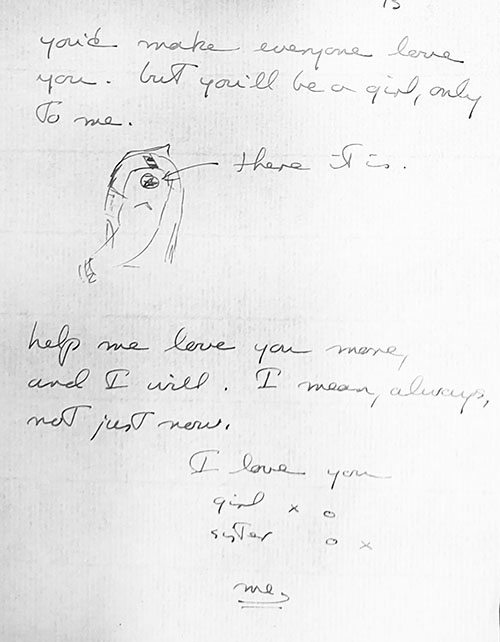 13
you'd make everyone love
you. but you'll be a girl, only
to me.
there it is.
help me love you more,
and I will. I mean, always,
not just now.
I love you
girl x o
sister o x
me.